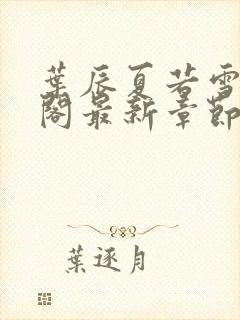 葉辰夏若雪
閣最新章節
葉逐月